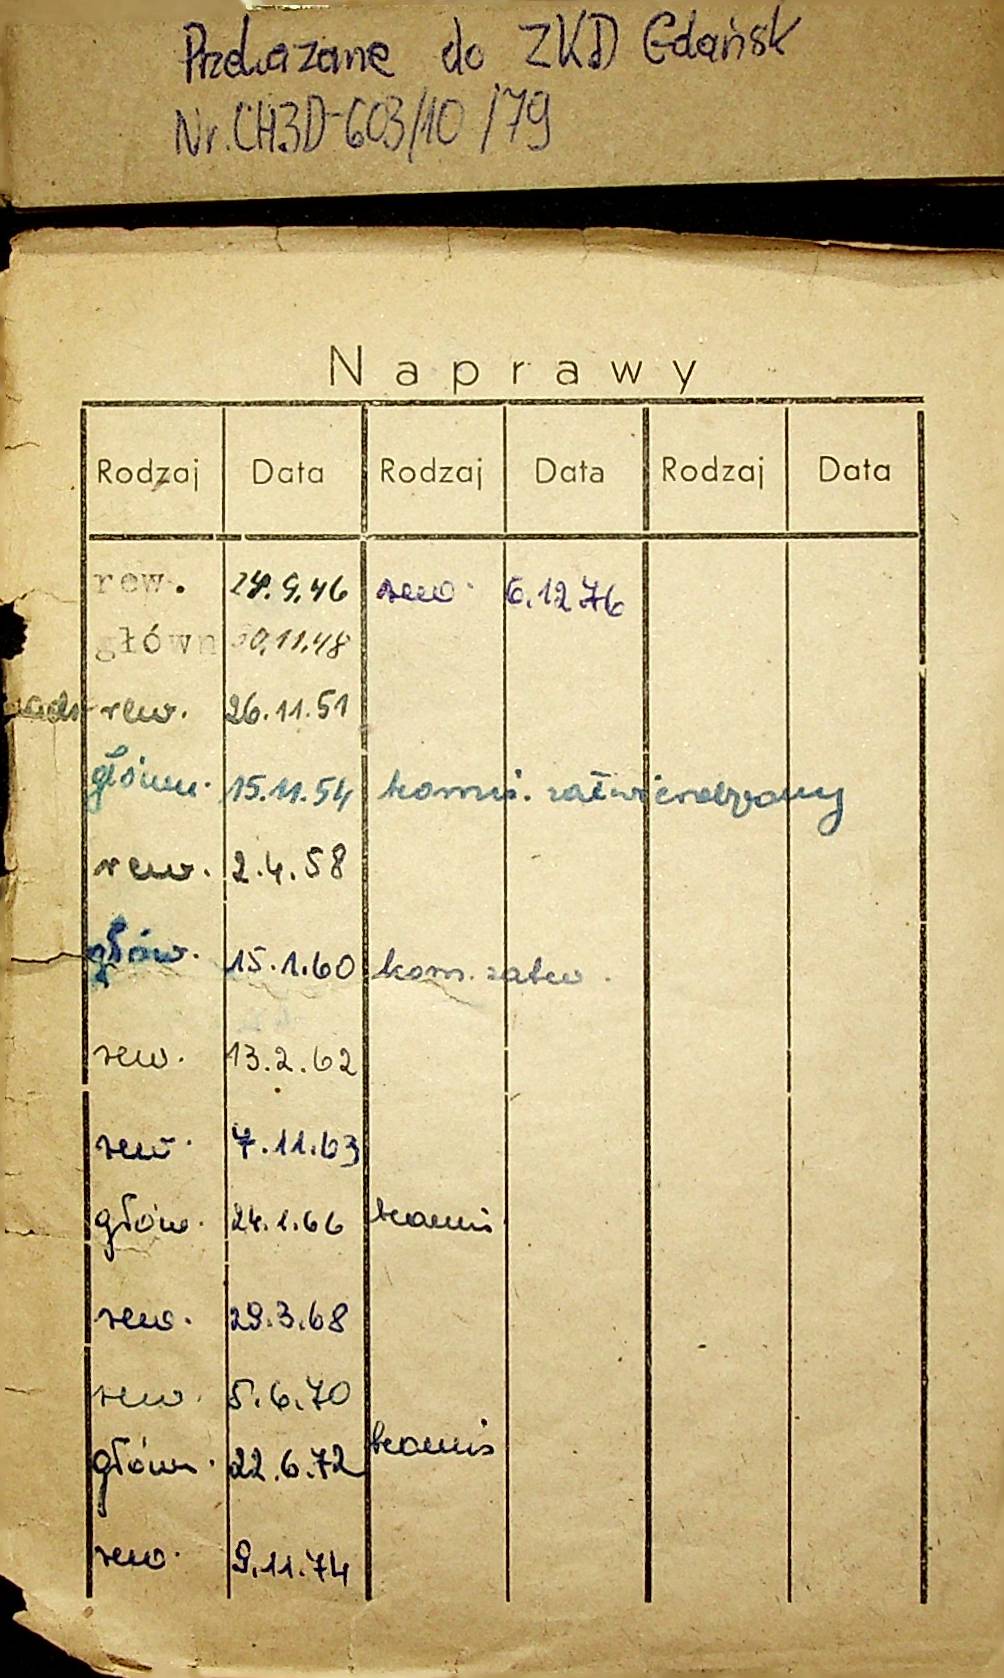 Przekazane do ZKD Gdańsk
Nr. CH3D-603/10/79
Naprawy
Rodzaj Data Rodzaj Data Rodzaj Data
rew. 24.9.46 rew. 6.12.76
główn 30.11.48
rew. 26.11.51
główn. 15.11.54 komis. zatwierdzony
rew. 2.4.58
głów. 15.1.60 kom. zatw.
rew. 13.2.62
rew. 7.11.63
główn. 24.1.66 komis
rew. 29.3.68
rew. 5.6.70
główn. 22.6.72 komis
rew. 9.11.74